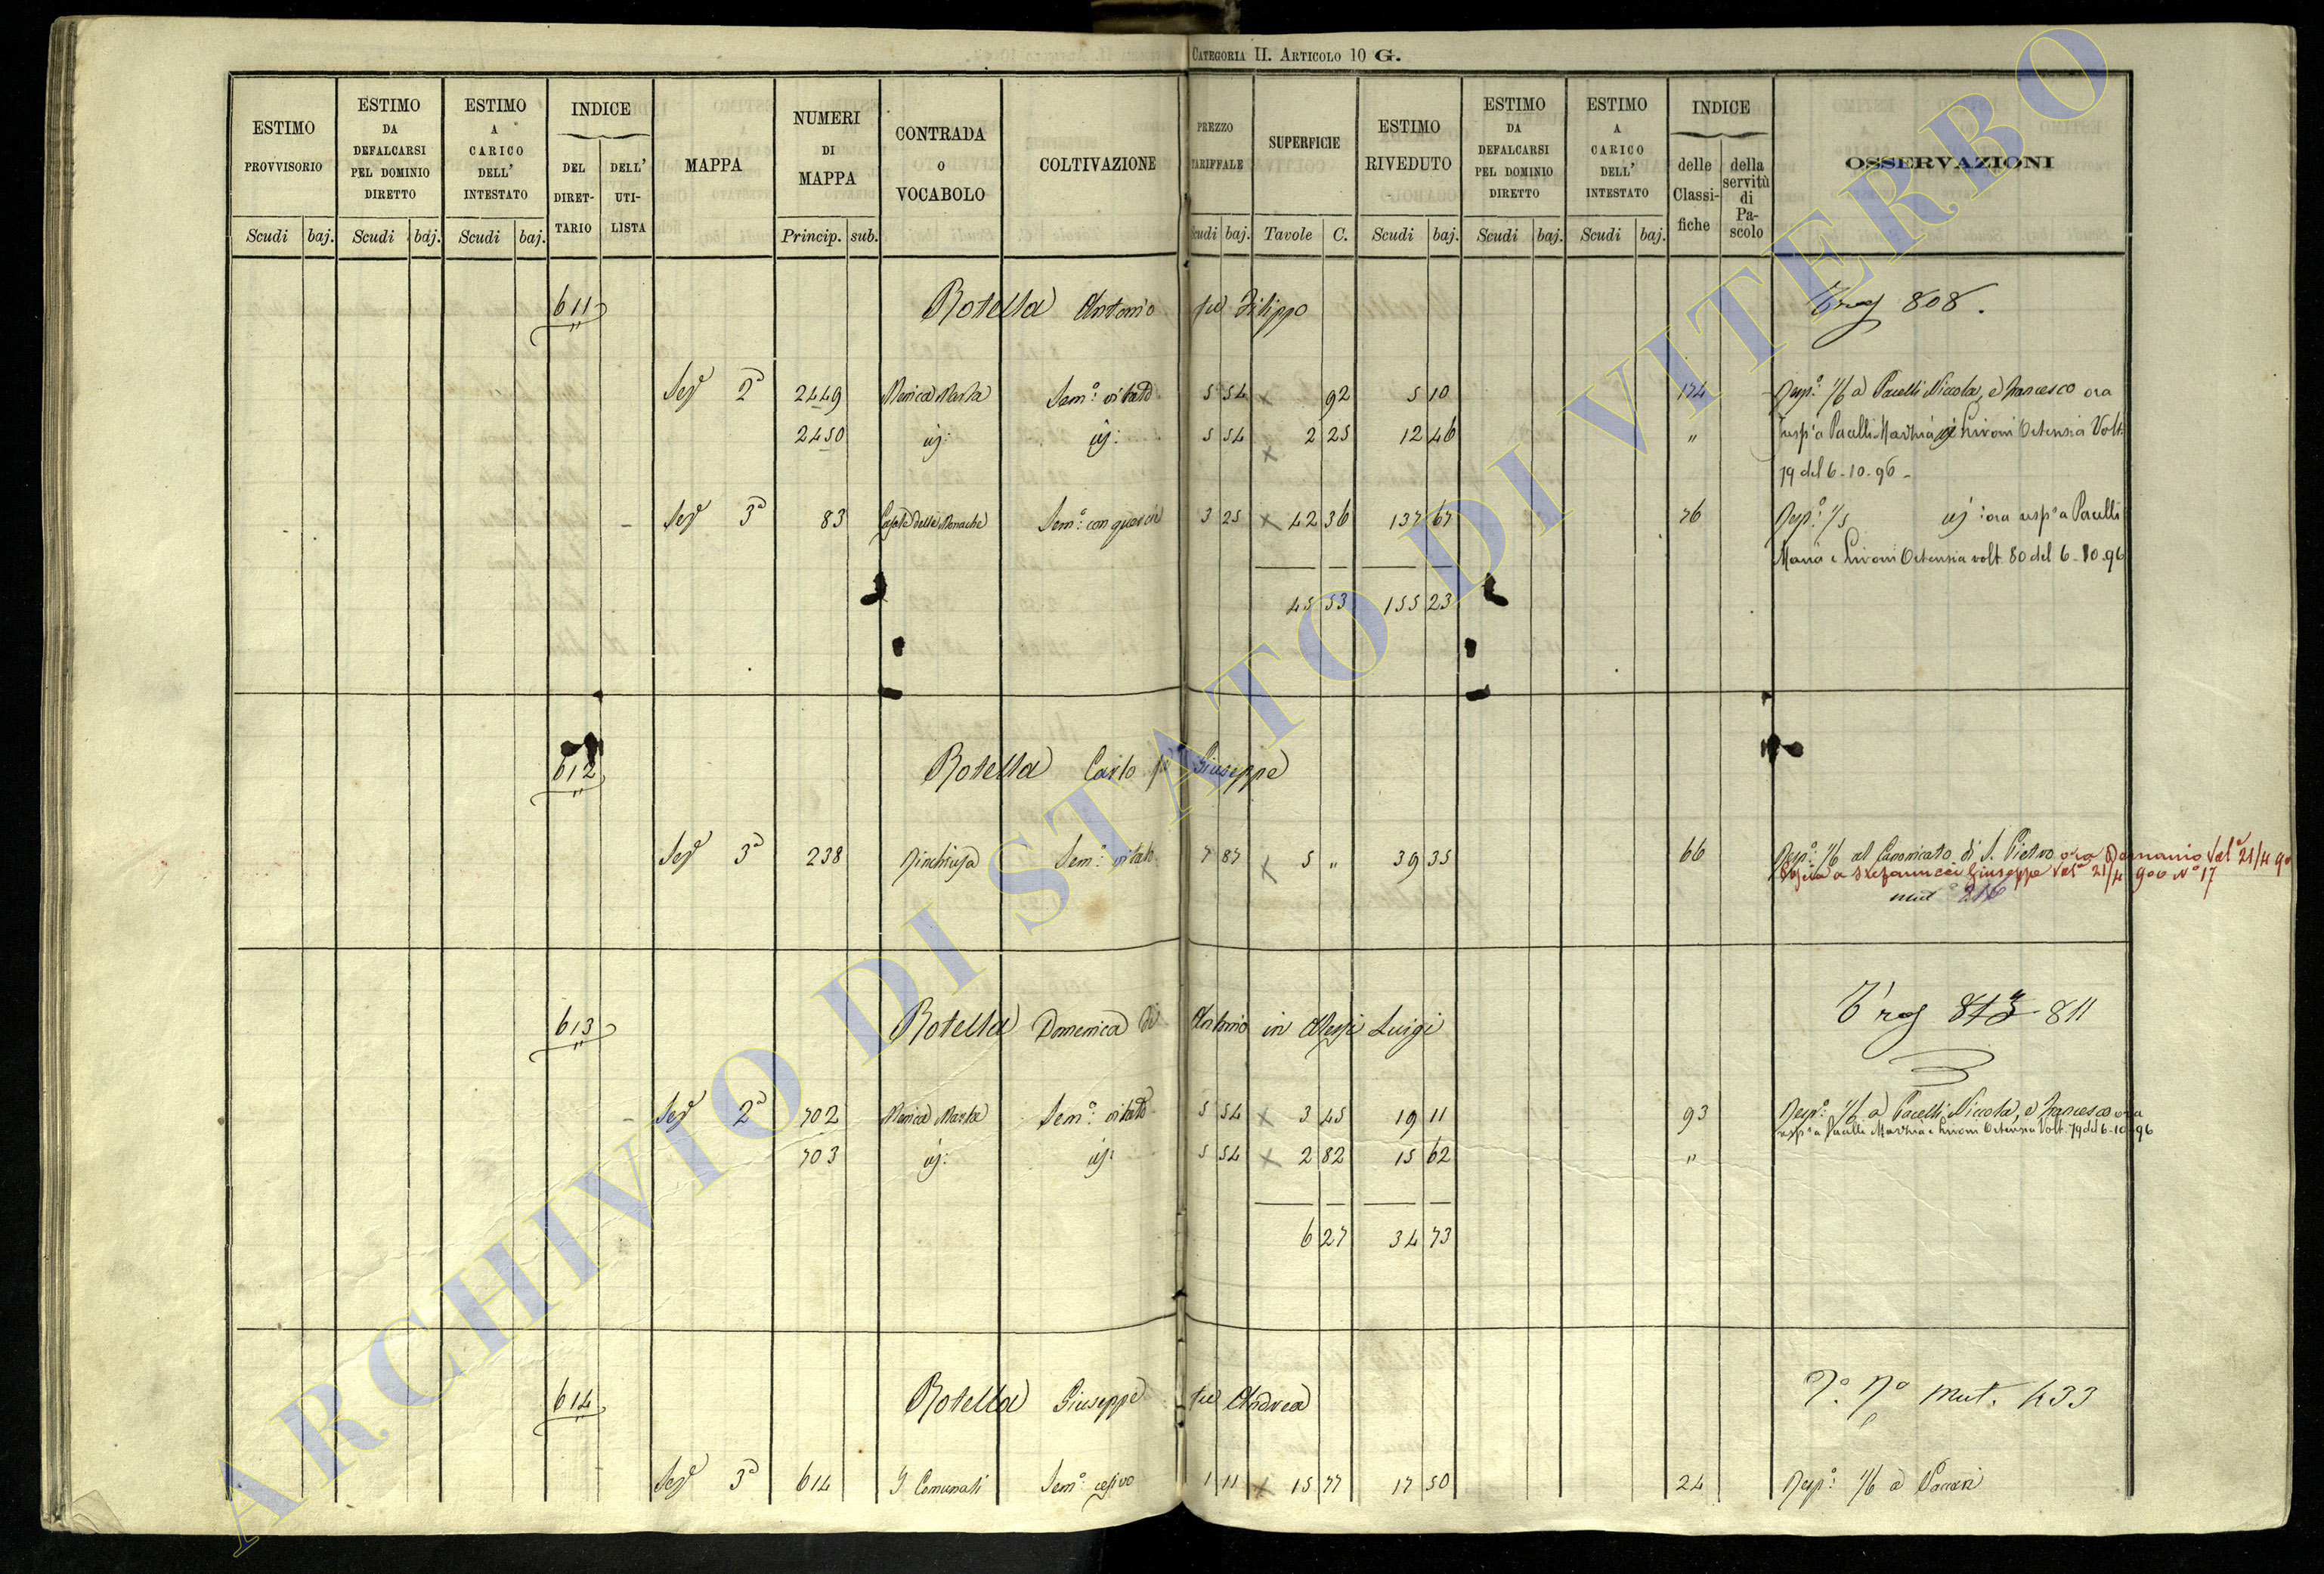 CATEGORIA II. ARTICOLO 10 G.
ESTIMO PROVVISORIO
ESTIMO DA DEFALCARSI PEL DOMINIO DIRETTO
ESTIMO A CARICO DELL' INTESTATO
INDICE
DEL DIRET-TARIO
DELL' UTI-LISTA
MAPPA
NUMERI DI MAPPA
CONTRADA O VOCABOLO
COLTIVAZIONE
PREZZO TARIFFALE
SUPERFICIE
ESTIMO RIVEDUTO
ESTIMO DA DEFALCARSI PEL DOMINIO DIRETTO
ESTIMO A CARICO DELL' INTESTATO
INDICE
delle Classi-fiche
della servitù di Pa-scolo
OSSERVAZIONI
Scudi baj. Scudi baj. Scudi baj. Princip. sub. Scudi baj. Tavole C. Scudi baj. Scudi baj. Scudi baj.
611 Rotella Antonio fu Filippo 808.
Sez. 2a 2449 Sem.o vitato 5 54 x 92 5 10 174 Risp.o 1/6 a Pacelli Niccola, e Francesco ora
2450 id: id: 5 54 x 2 25 12 46 "
risp.a Pacelli Ortensia Volt.
79 del 6-10-96-
Sez. 3a 83 delle Monache Sem.o con querce 3 25 x 42 36 137 67 76 Risp.o 1/5 id: ora risp.a Pacelli
Maria e Ortensia volt. 80 del 6-10-96
45 53 155 23
612 Rotella Carlo Giuseppe
Sez. 3a 238 Rinchiusa Sem.o vitato 7 87 x 5 " 39 35 66 Risp.o 1/6 al Canonicato di S. Pietro ora Demanio 21/4 90
a Stefanucci Giuseppe 21/4 900 No 17
mut.e 216
613 Rotella Domenica di Antonio in Alessi Luigi 813 811
Sez. 2a 702 Sem.o vitato 5 54 x 3 45 19 11 93 Risp.o 1/6 a Pacelli Niccola, e Francesco ora
risp.a Pacelli Ortensia Volt. 79 del 6-10-96
703 id: id: 5 54 x 2 82 15 62 "
6 27 34 73
614 Rotella Giuseppe fu Andrea mut. 433
Sez. 3a 614 I Comunali Sem.o 1 11 x 15 77 17 50 24 Risp.o 1/6 a
ARCHIVIO DI STATO DI VITERBO